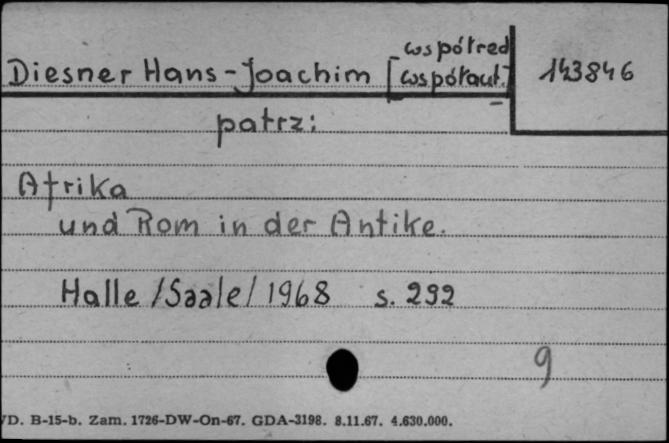 współred
Diesner Hans-Joachim [współaut.] 143846
patrz:
Afrika
und Rom in der Antike.
Halle /Saale/ 1968 s. 292
9
D. B-15-b. Zam. 1726-DW-On-67. GDA-3198. 8.11.67. 4.630.000.